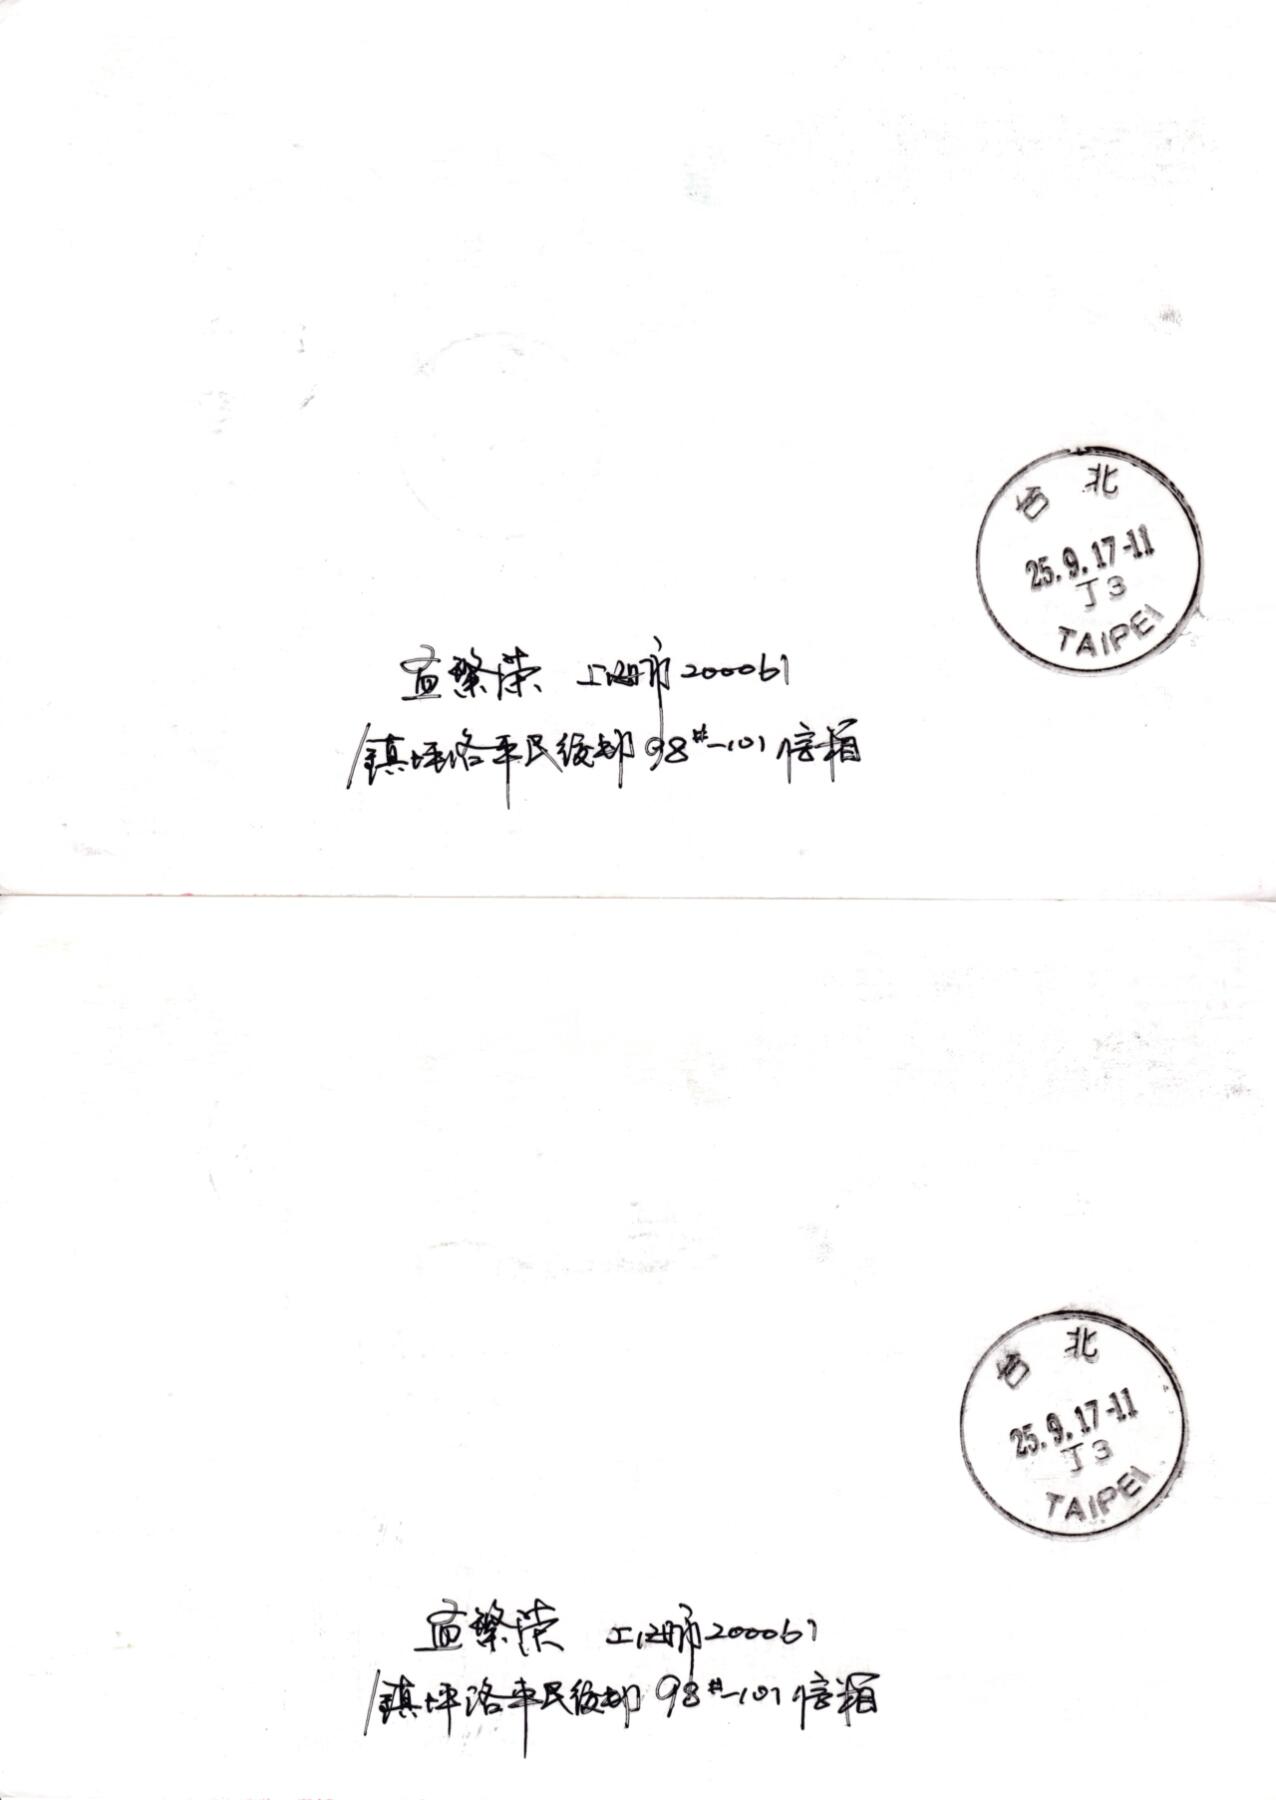 台北
25.9.17-11
J3
TAIPEI
孟繁荣 上海市200061
镇坪路平民后部98#-101信箱
台北
25.9.17-11
J3
TAIPEI
孟繁荣 上海市200061
镇坪路平民后部98#-101信箱